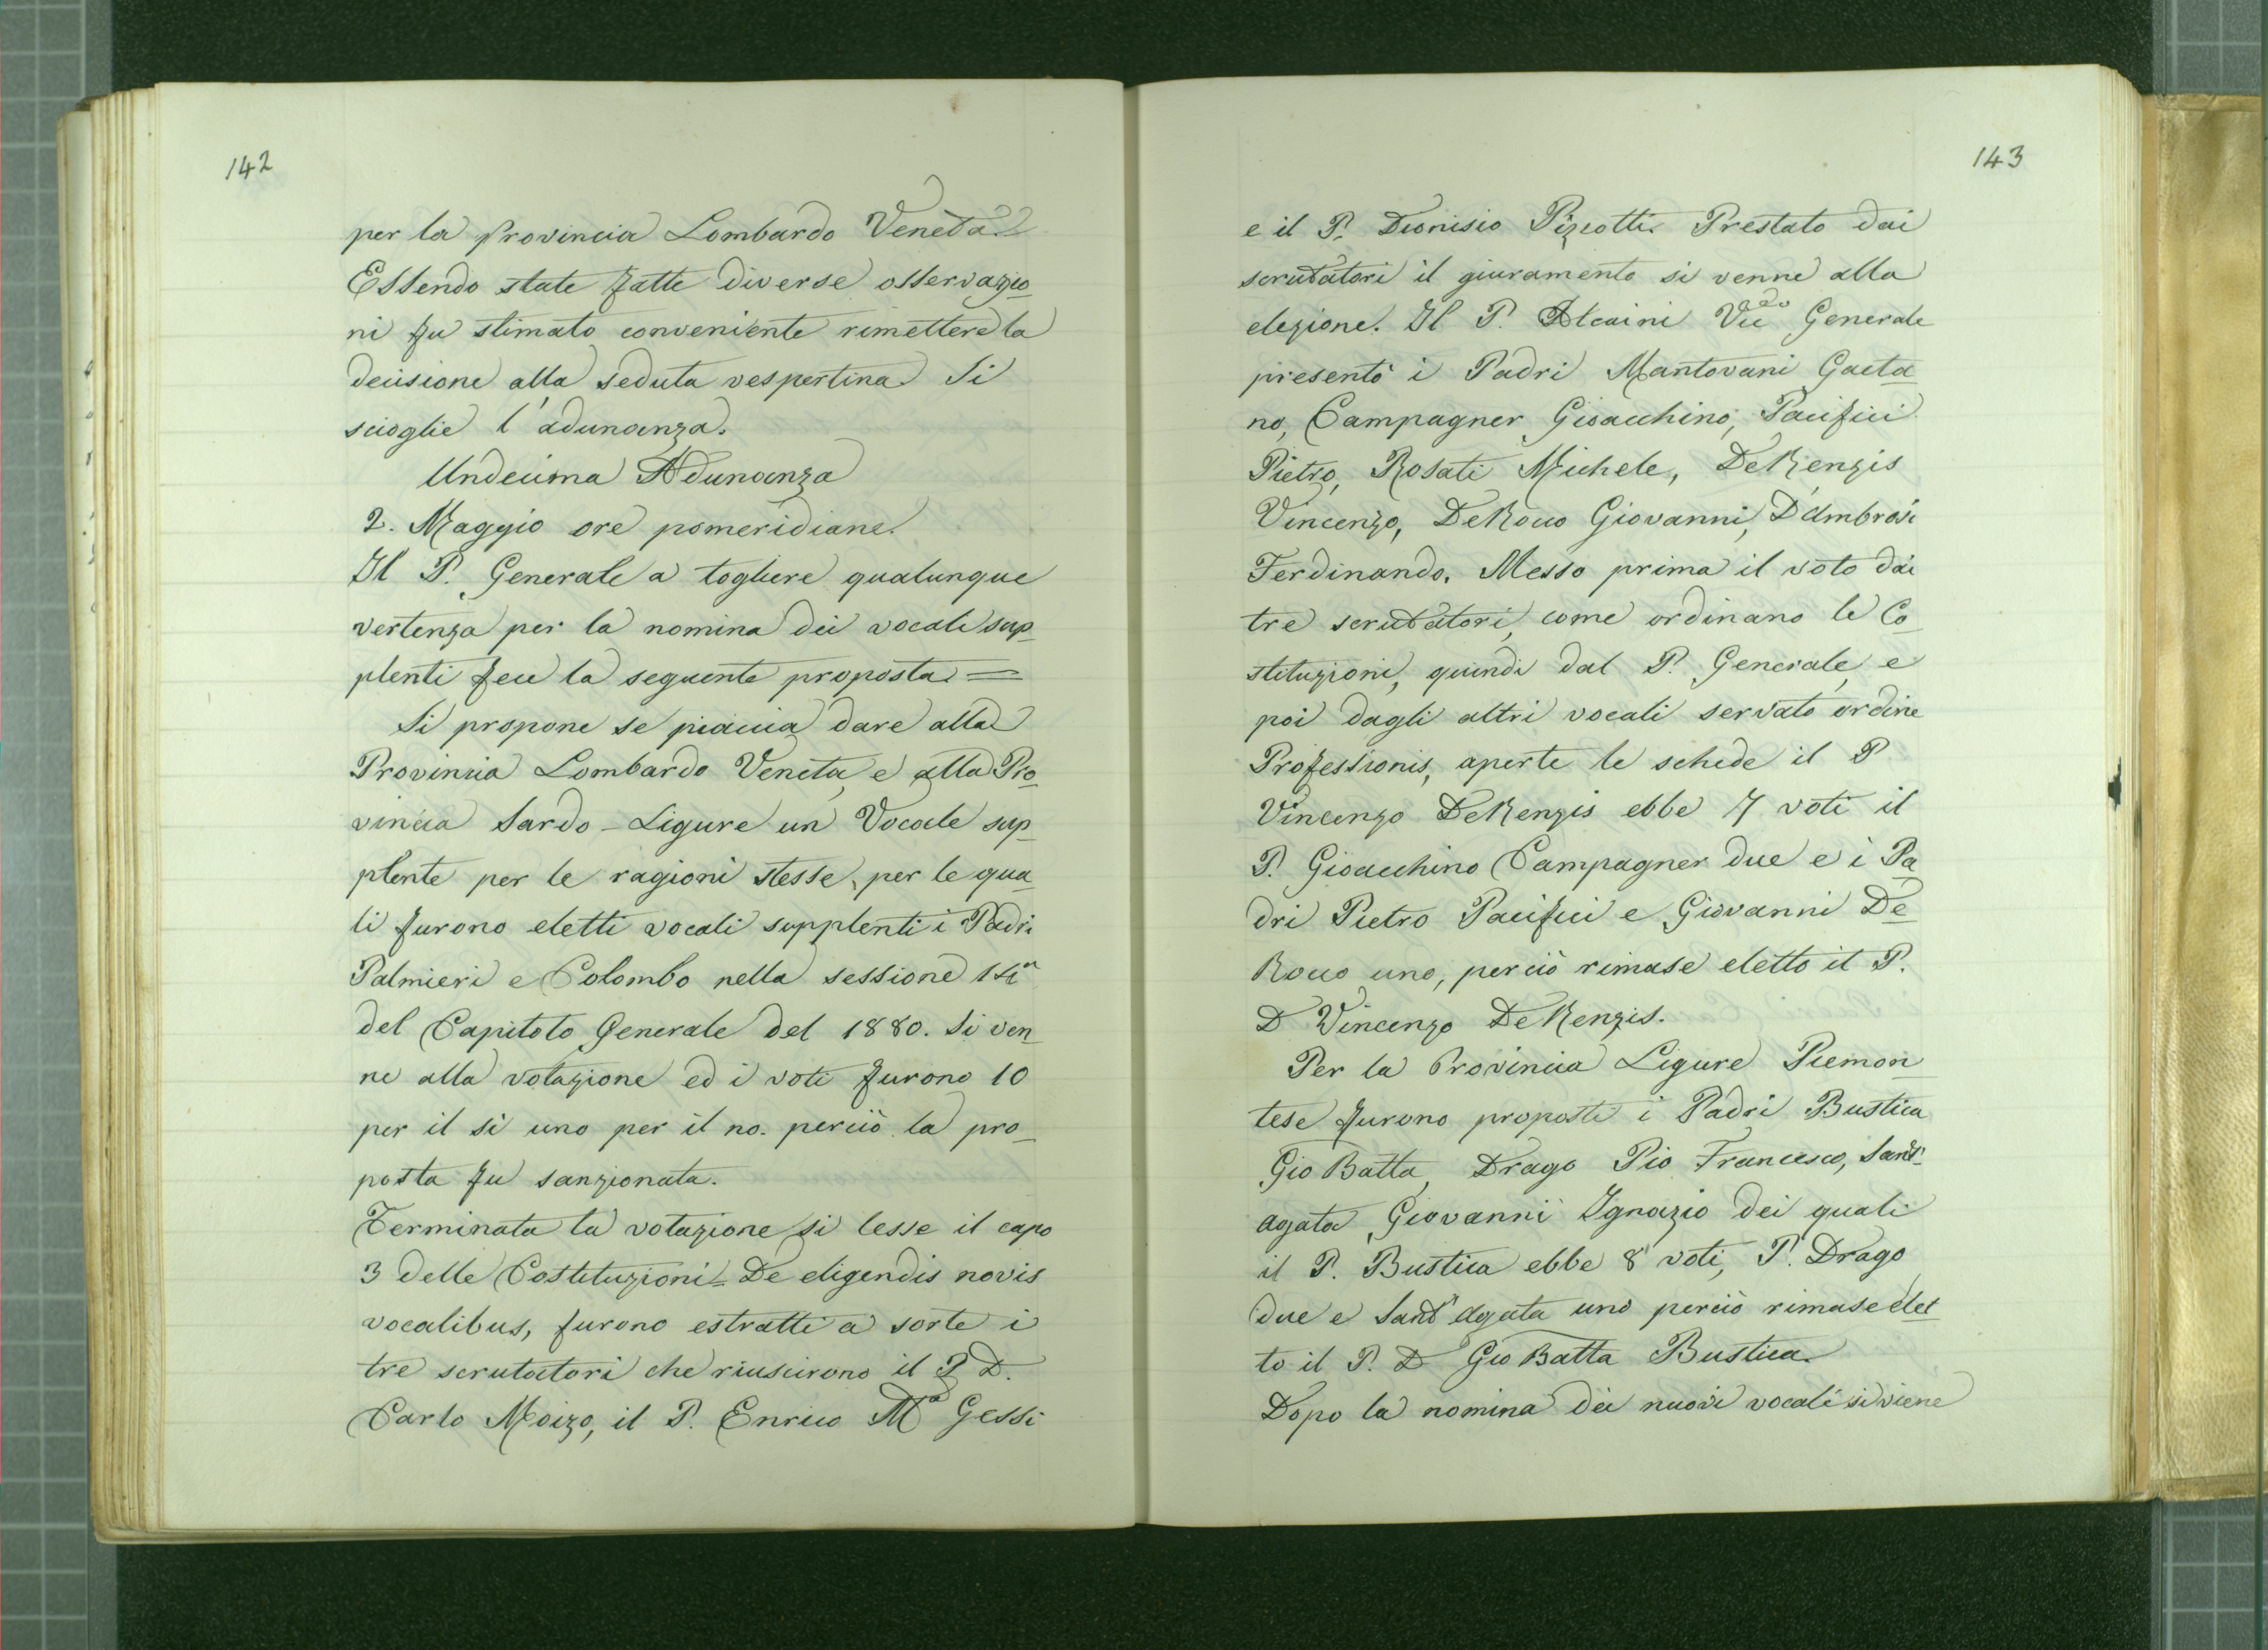 142
per la provincia Lombardo Veneta
Essendo state fatte diverse osservazio
ni fu stimato conveniente rimettere la
decisione alla seduta vespertina. Si
scioglie l'adunanza.
Undecima Adunanza
2. Maggio ore pomeridiane.
Il P. Generale a togliere qualunque
vertenza per la nomina dei vocali sup_
plenti fece la seguente proposta =
Si propone se piaccia dare alla
Provincia Lombardo Veneta, e alla Pro_
vincia Sardo-Ligure un Vocale sup_
plente per le ragioni stesse, per le qua_
li furono eletti vocali supplenti i Padri
Palmieri e Colombo nella sessione
del Capitolo Generale del 1880. Si ven_
ne alla votazione ed i voti furono 10
per il si uno per il no. perciò la pro_
posta fu sanzionata.
Terminata la votazione si lesse il capo
3 delle Costituzioni = De eligendis novis
vocalibus, furono estratti a sorte i
tre scrutatori che riuscirono il P. D.
Carlo Moizo, il P. Enrico Mª Gessi
143
e il P. Dionisio Pizzotti. Prestato dai
scrutatori il giuramento si venne alla
elezione. Il P. Alcaini Generale
presentò i Padri Mantovani Gaeta_
no, Campagner Gioacchino, Pacifici
Pietro, Rosati Michele, DeRenzis
Vincenzo, DeRocco Giovanni, D'Ambrosi
Ferdinando. Messo prima il voto dai
tre scrutatori, come ordinano le Co_
stituzioni, quindi dal P. Generale, e
poi dagli altri vocali servato ordine
Professionis, aperte le schede il P
Vincenzo DeRenzis ebbe 7 voti il
P. Gioacchino Campagner due e i Pa_
dri Pietro Pacifici e Giovanni De_
Rocco uno, perciò rimase eletto il P.
D Vincenzo DeRenzis.
Per la Provincia Ligure Piemon_
tese furono proposti i Padri Bustica
Gio Batta, Drago Pio Francesco, Sant'
agata Giovanni Ignazio dei quali
il P. Bustica ebbe 8 voti, P. Drago
due e Sant'Agata uno perciò rimase elet_
to il P. D Gio Batta Bustica.
Dopo la nomina dei nuovi vocali si viene